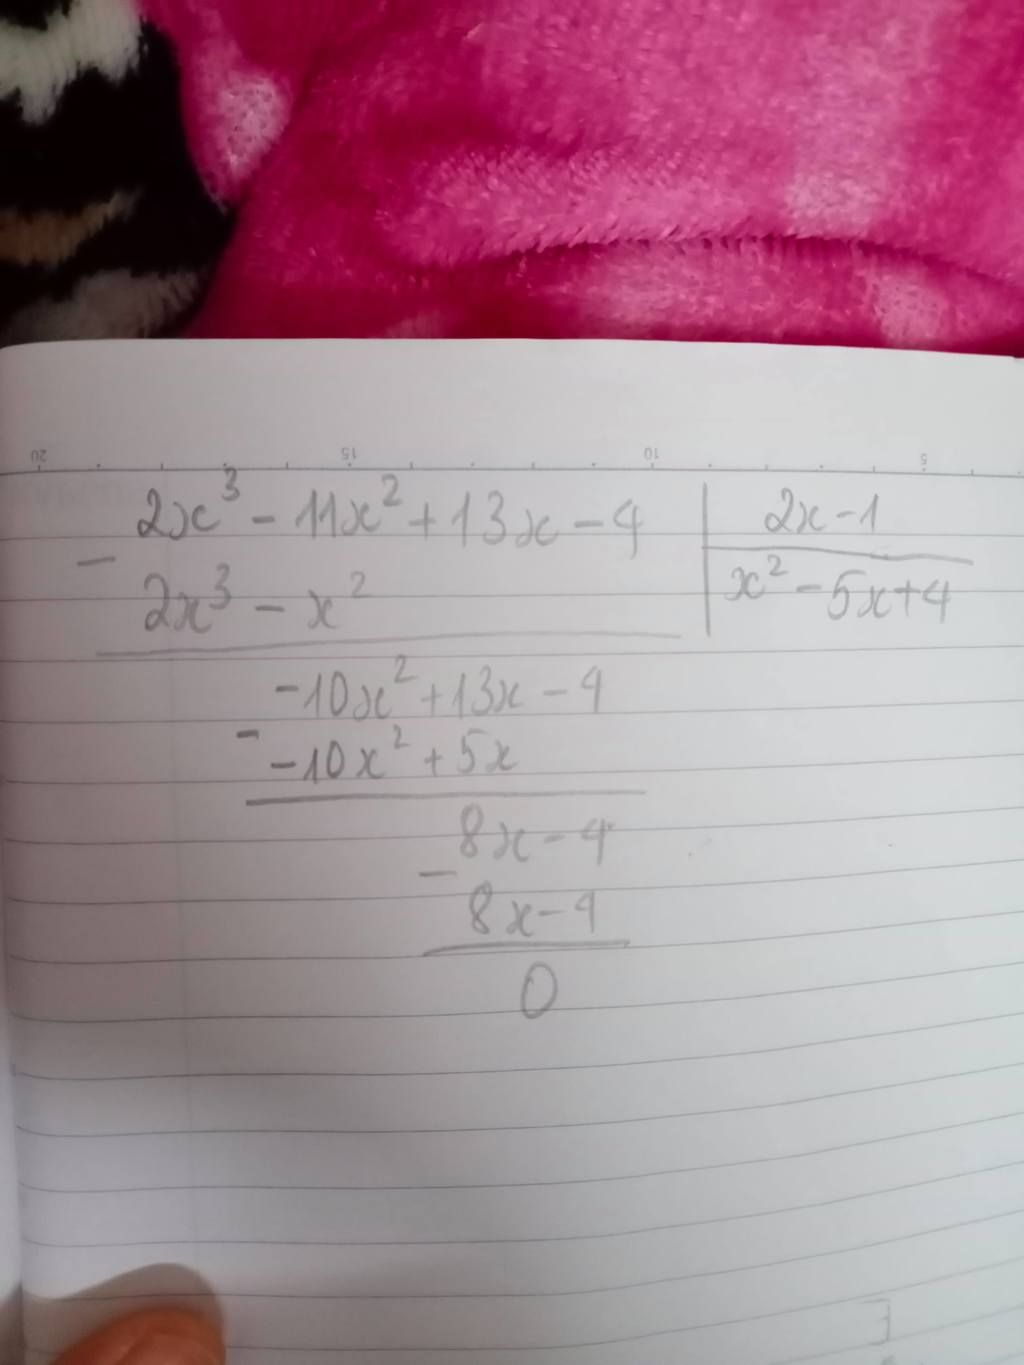 20 15 10 5
2x³ - 11x² + 13x - 4 | 2x - 1
-
2x³ - x² | x² - 5x + 4
-10x² + 13x - 4
-
-10x² + 5x
8x - 4
-
8x - 4
0